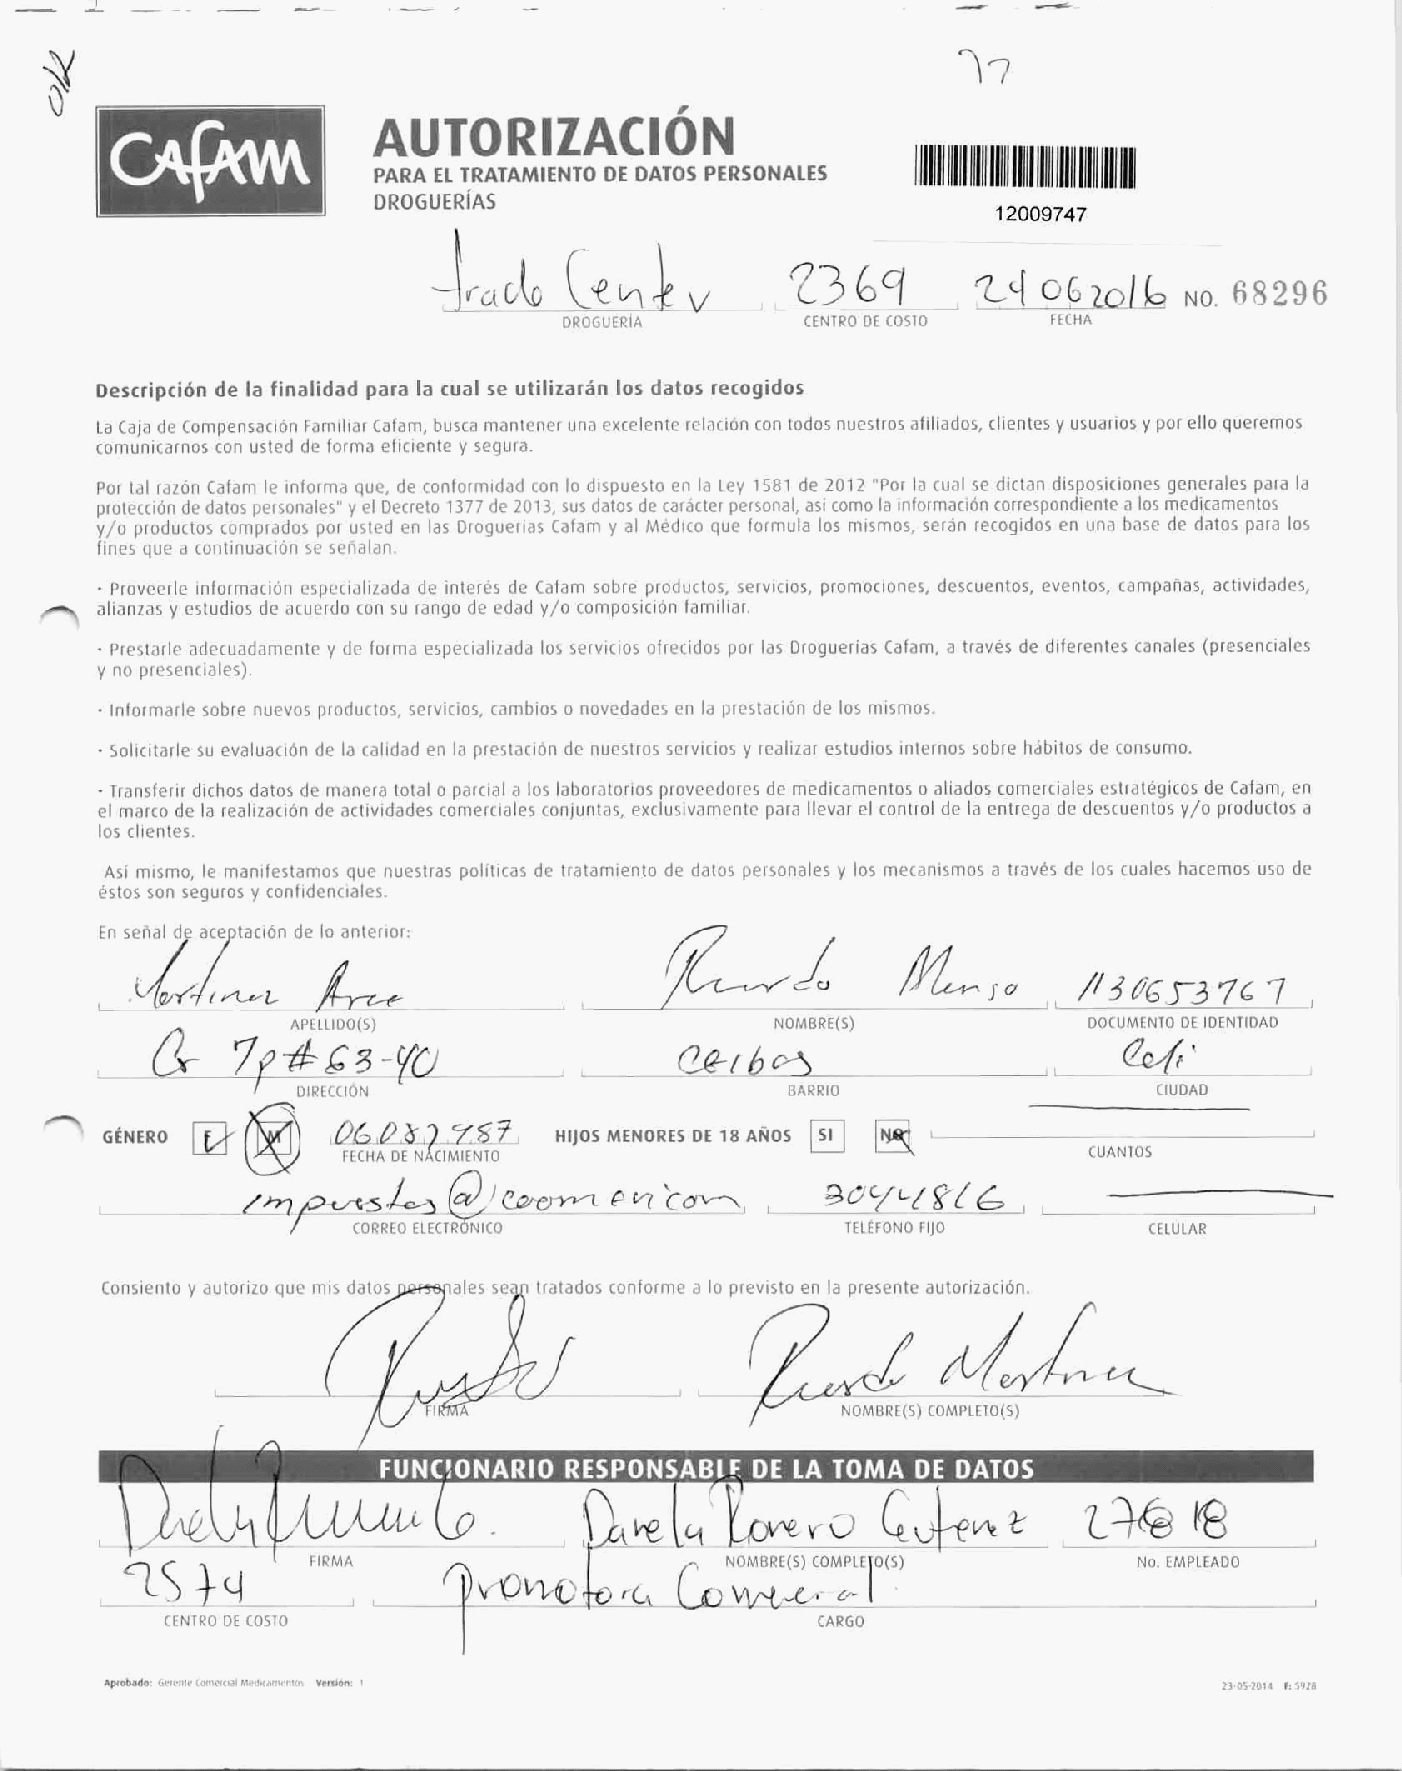 OK
77
CAFAM
AUTORIZACIÓN
PARA EL TRATAMIENTO DE DATOS PERSONALES
DROGUERÍAS
12009747
trade Center 2369 24 06 2016 NO. 68296
DROGUERÍA CENTRO DE COSTO FECHA
Descripción de la finalidad para la cual se utilizarán los datos recogidos
La Caja de Compensación Familiar Cafam, busca mantener una excelente relación con todos nuestros afiliados, clientes y usuarios y por ello queremos
comunicarnos con usted de forma eficiente y segura.
Por tal razón Cafam le informa que, de conformidad con lo dispuesto en la Ley 1581 de 2012 "Por la cual se dictan disposiciones generales para la
protección de datos personales" y el Decreto 1377 de 2013, sus datos de carácter personal, así como la información correspondiente a los medicamentos
y/o productos comprados por usted en las Droguerías Cafam y al Médico que formula los mismos, serán recogidos en una base de datos para los
fines que a continuación se señalan.
· Proveerle información especializada de interés de Cafam sobre productos, servicios, promociones, descuentos, eventos, campañas, actividades,
alianzas y estudios de acuerdo con su rango de edad y/o composición familiar.
· Prestarle adecuadamente y de forma especializada los servicios ofrecidos por las Droguerías Cafam, a través de diferentes canales (presenciales
y no presenciales).
· Informarle sobre nuevos productos, servicios, cambios o novedades en la prestación de los mismos.
· Solicitarle su evaluación de la calidad en la prestación de nuestros servicios y realizar estudios internos sobre hábitos de consumo.
· Transferir dichos datos de manera total o parcial a los laboratorios proveedores de medicamentos o aliados comerciales estratégicos de Cafam, en
el marco de la realización de actividades comerciales conjuntas, exclusivamente para llevar el control de la entrega de descuentos y/o productos a
los clientes.
Así mismo, le manifestamos que nuestras políticas de tratamiento de datos personales y los mecanismos a través de los cuales hacemos uso de
éstos son seguros y confidenciales.
En señal de aceptación de lo anterior:
Martinez Arce Ricardo 1130653767
APELLIDO(S) NOMBRE(S) DOCUMENTO DE IDENTIDAD
Cr 7p # 63-40 Ceibas Cali
DIRECCIÓN BARRIO CIUDAD
GÉNERO F M 06081987 HIJOS MENORES DE 18 AÑOS SI NO
FECHA DE NACIMIENTO CUANTOS
impuestos@ 3044816
CORREO ELECTRÓNICO TELÉFONO FIJO CELULAR
Consiento y autorizo que mis datos personales sean tratados conforme a lo previsto en la presente autorización.
Ricardo Martinez
FIRMA NOMBRE(S) COMPLETO(S)
FUNCIONARIO RESPONSABLE DE LA TOMA DE DATOS
Daniela Romero 27818
FIRMA NOMBRE(S) COMPLETO(S) No. EMPLEADO
2574 Promotora Comercial
CENTRO DE COSTO CARGO
Aprobado: Gerente Comercial Medicamentos Versión: 1
23-05-2014 F: 5928